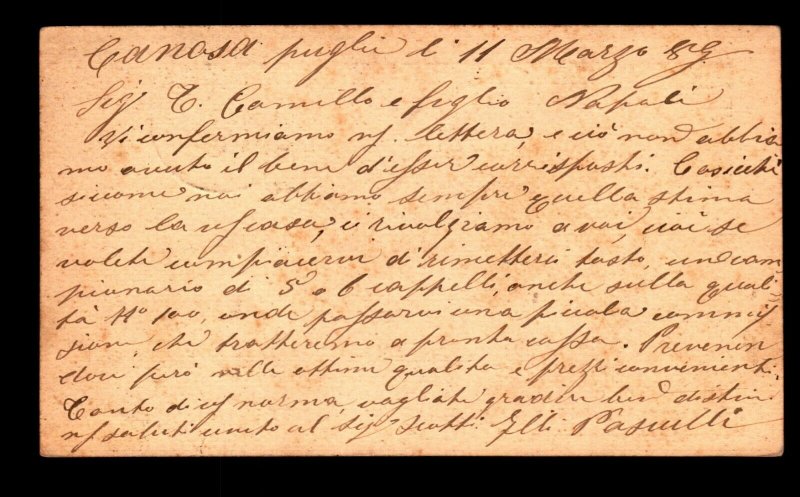 Canosa puglie li 11 Marzo 89
Sigr T. Camillo e figlio Napoli
Vi confermiamo ns. lettera, e ciò non abbia
mo avuto il bene d'esser corrisposti. Cosicché
siccome noi abbiamo sempre quella stima
verso la vs casa, ci rivolgiamo a voi, cioè se
volete compiacervi di rimetterci tosto, un cam
pionario di 5 o 6 cappelli, anche sulla quali
tà No 100, onde passarvi una piccola commis
sione, che tratteremo a pronta cassa. Prevenen
dovi però nelle ottime qualità e prezzi convenienti.
Tanto di vs norma, vogliate gradire ben distin
ns saluti unito al Sigr Scotti. Flli Pasculli